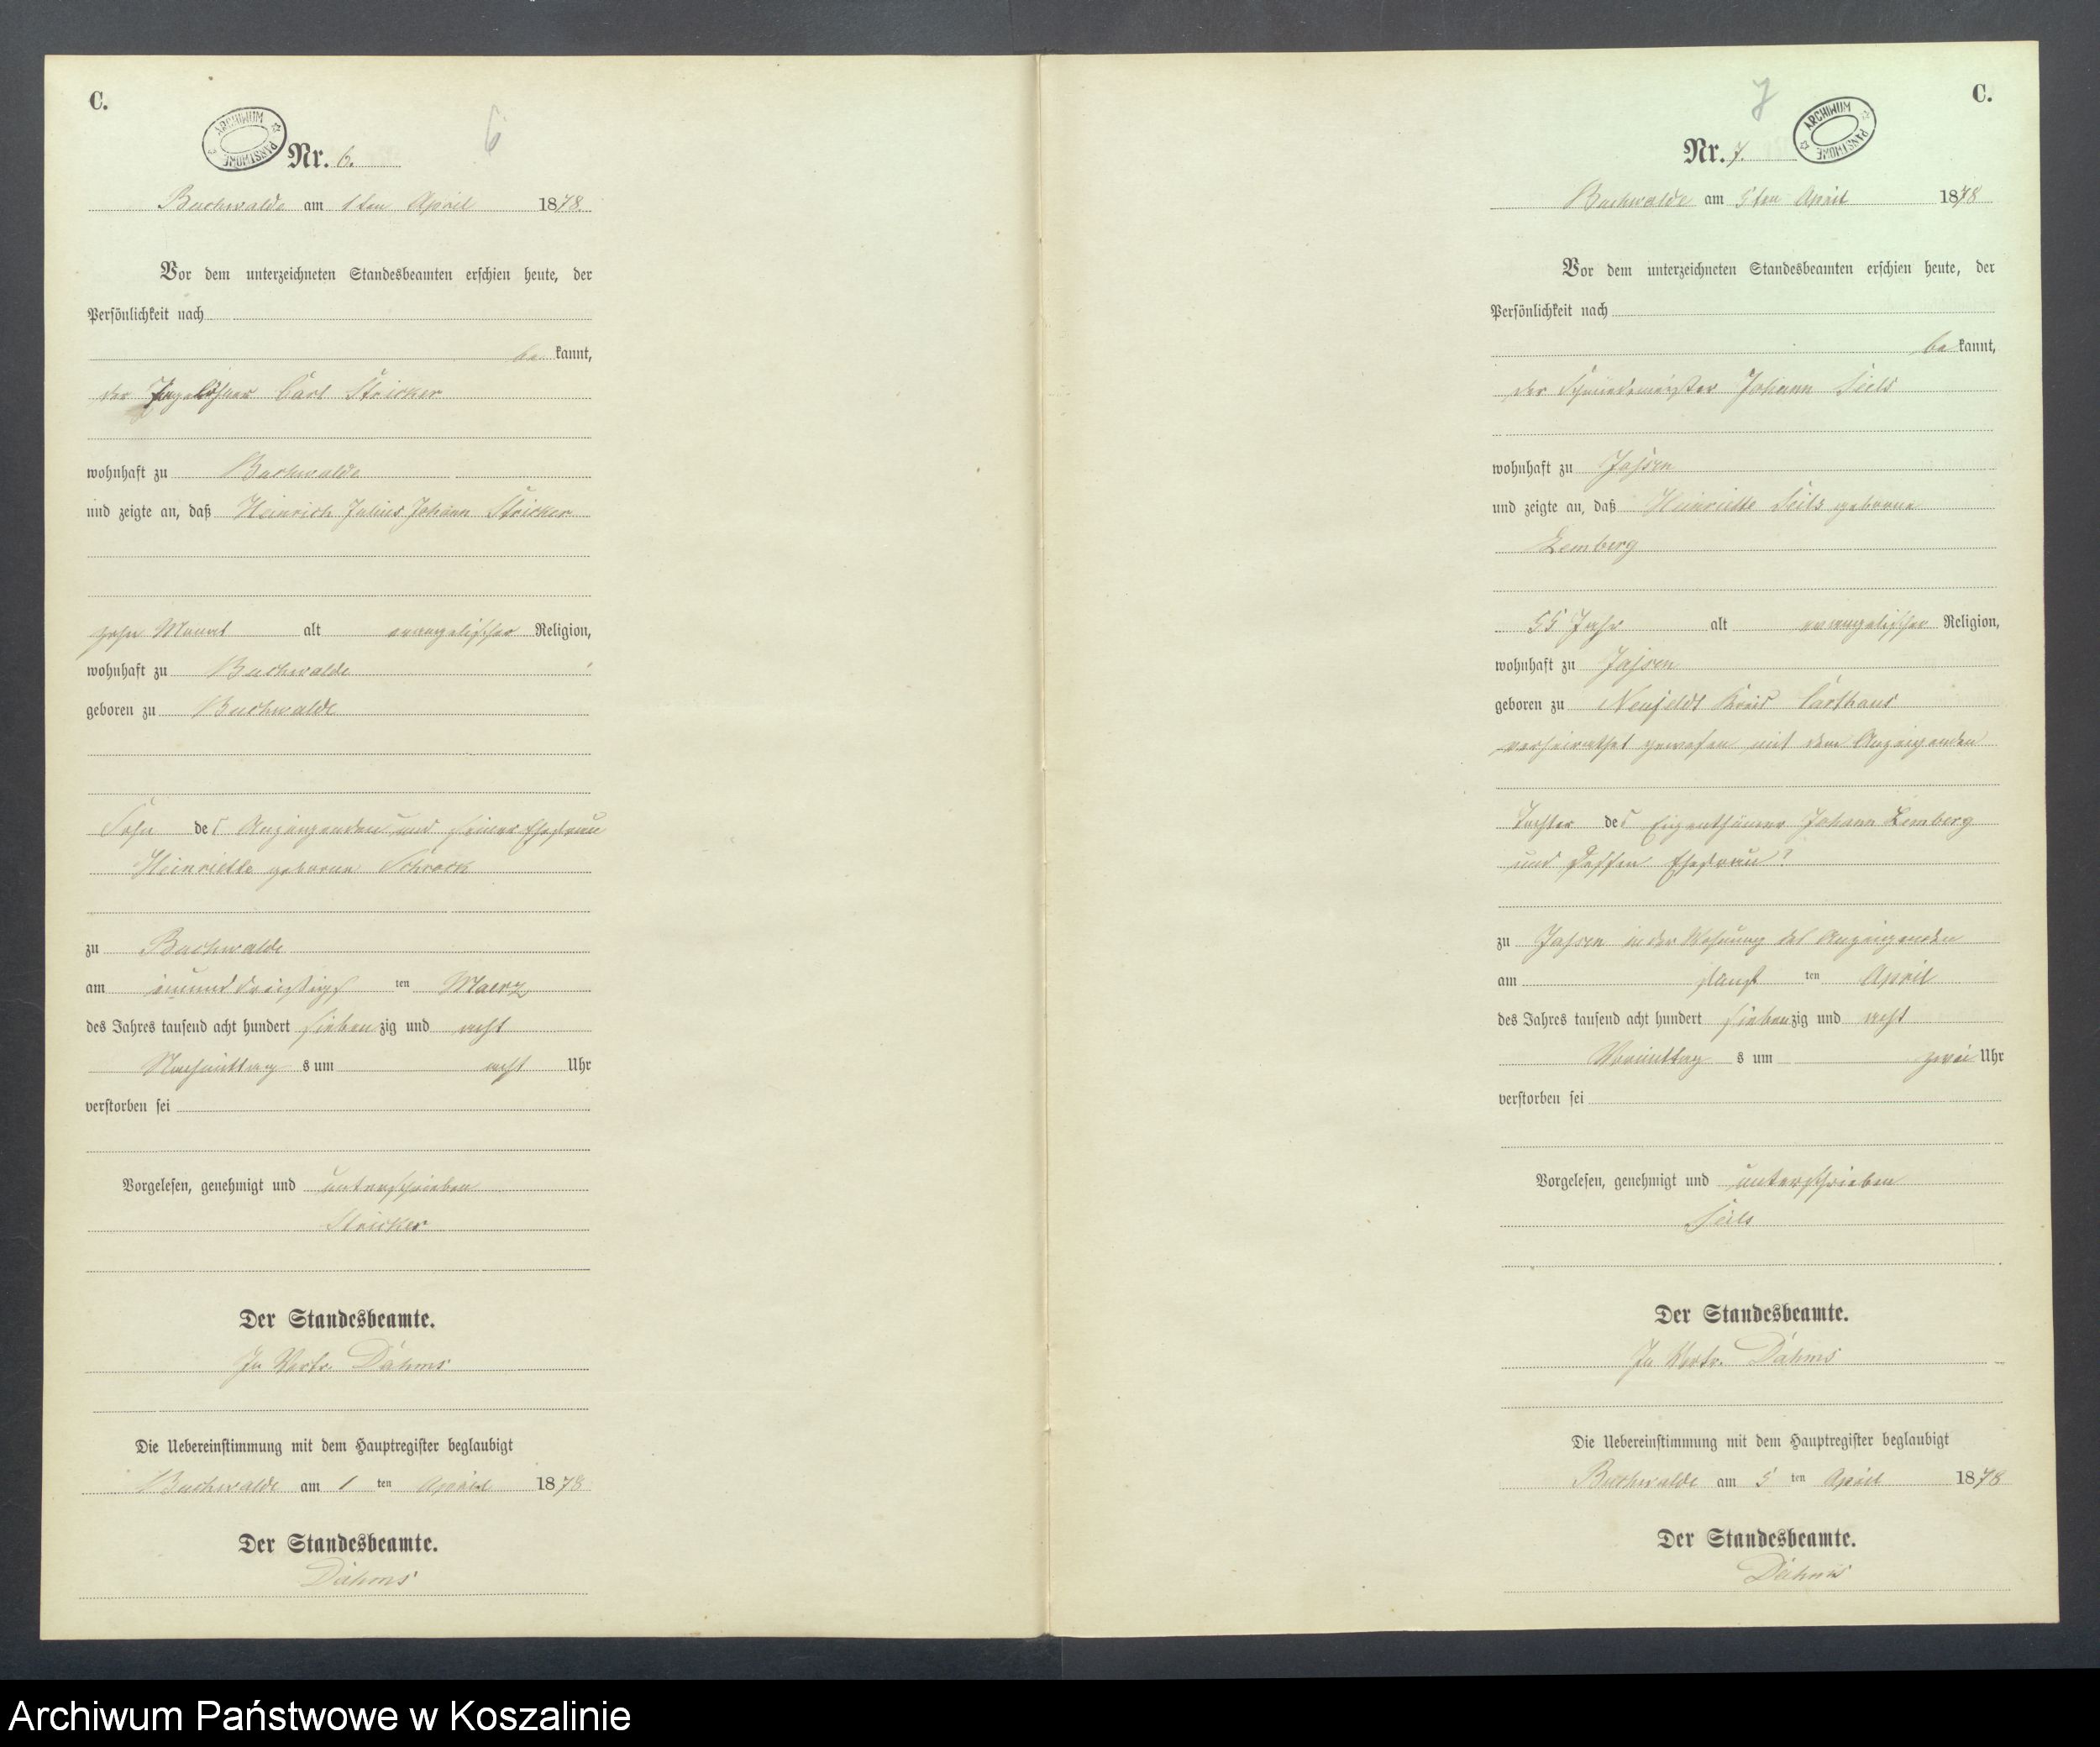 C.
ARCHIWUM PAŃSTWOWE
6
Nr. 6.
Buchwalde am 1ten April 1878.
Vor dem unterzeichneten Standesbeamten erschien heute, der
Persönlichkeit nach
be kannt,
der Tagelöhner Carl Stricker
wohnhaft zu Buchwalde
und zeigte an, daß Heinrich Julius Johann Stricker
zehn Monat alt evangelischer Religion,
wohnhaft zu Buchwalde
geboren zu Buchwalde
Sohn des Anzeigenden und seiner Ehefrau
Heinriette geborene Schrock
zu Buchwalde
am einunddreißigs ten Maerz
des Jahres tausend acht hundert sieben zig und acht
Nachmittag s um acht Uhr
verstorben sei
Vorgelesen, genehmigt und unterschrieben
Stricker
Der Standesbeamte.
In Vertr. Dahms
Die Uebereinstimmung mit dem Hauptregister beglaubigt
Buchwalde am 1 ten April 1878
Der Standesbeamte.
Dahms
C.
7
ARCHIWUM PAŃSTWOWE
Nr. 7.
Buchwalde am 5ten April 1878
Vor dem unterzeichneten Standesbeamten erschien heute, der
Persönlichkeit nach
be kannt,
der Schmiedemeister Johann Seils
wohnhaft zu Jassen
und zeigte an, daß Heinriette Seils geborene
Lemberg
55 Jahr alt evangelischer Religion,
wohnhaft zu Jassen
geboren zu Neufeldt Kreis Carthaus
verheirathet gewesen mit dem Anzeigenden
Tochter des Eigenthümer Johann Lemberg
und dessen Ehefrau ?
zu Jassen in der Wohnung des Anzeigenden
am fünf ten April
des Jahres tausend acht hundert siebenzig und acht
Vormittag s um zwei Uhr
verstorben sei
Vorgelesen, genehmigt und unterschrieben
Seils
Der Standesbeamte.
In Vertr. Dahms
Die Uebereinstimmung mit dem Hauptregister beglaubigt
Buchwalde am 5 ten April 1878
Der Standesbeamte.
Dahms
Archiwum Państwowe w Koszalinie